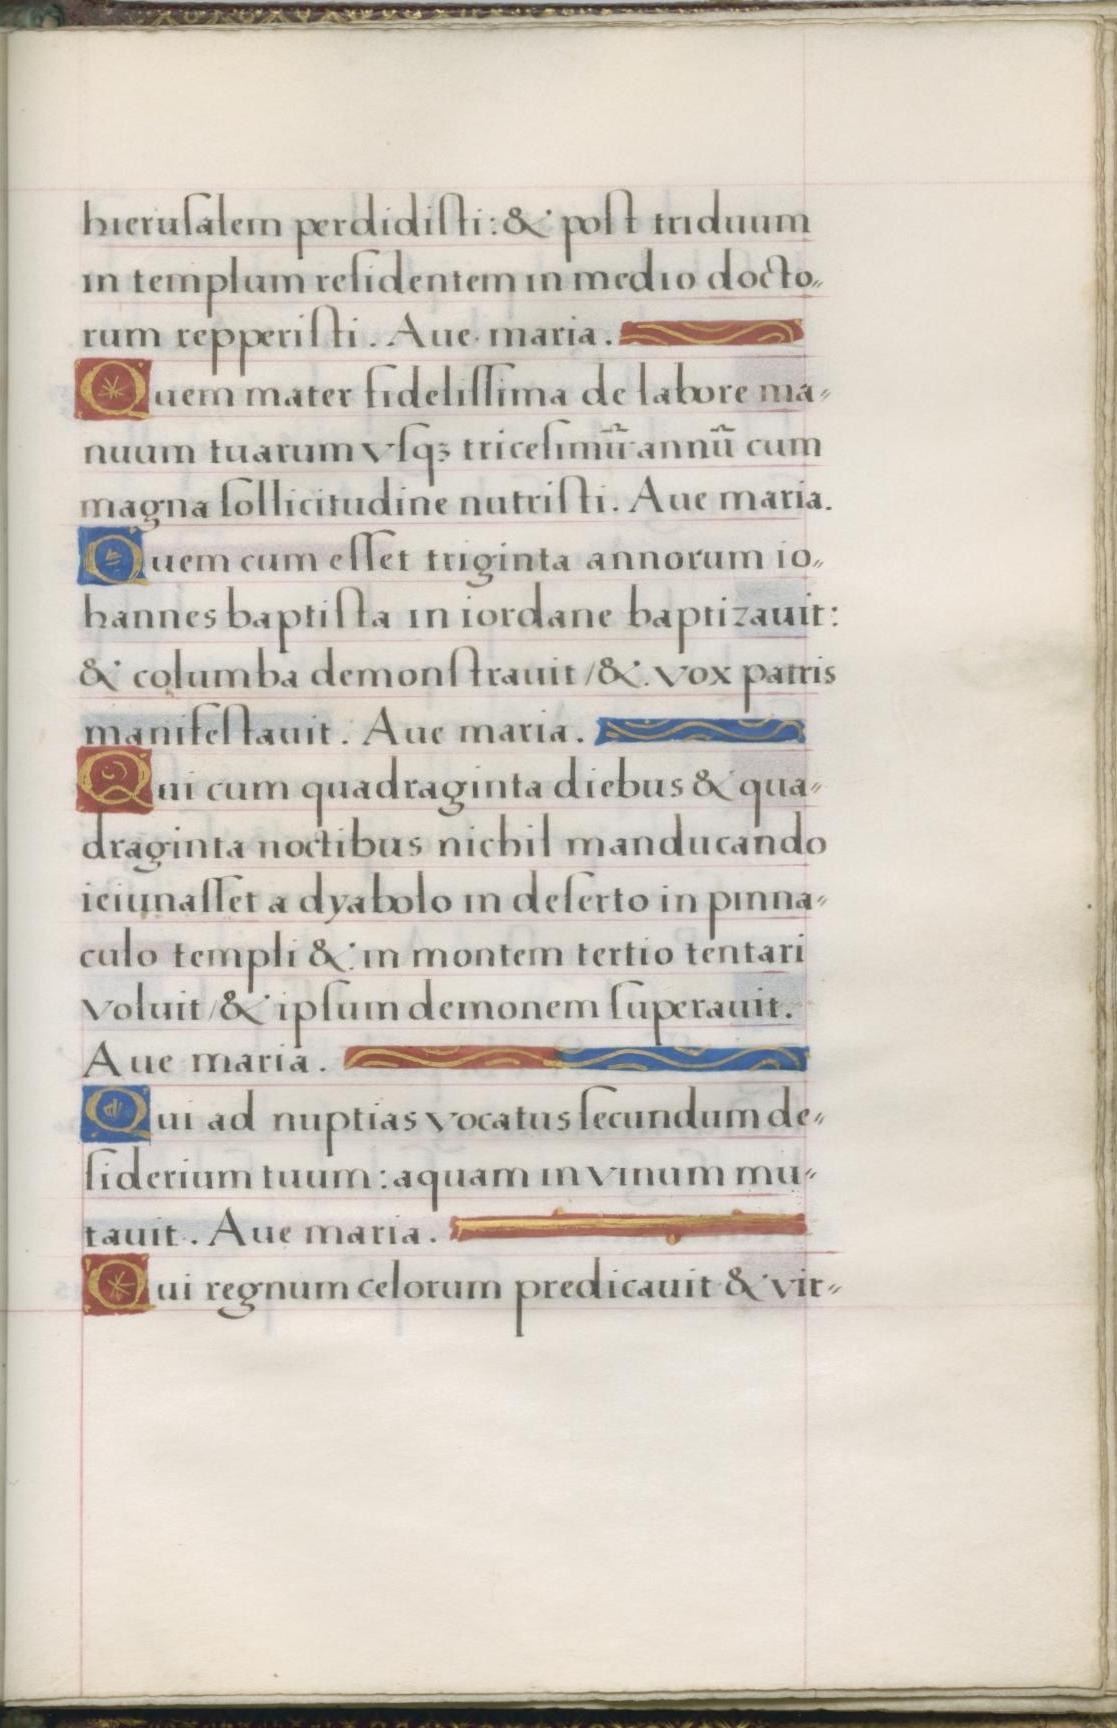 hieruſalem perdidiſti: & poſt triduum
in templum reſidentem in medio docto„
rum repperiſti. Aue maria.
Quem mater fideliſſima de labore ma„
nuum tuarum vſqꝫ triceſimū annū cum
magna ſollicitudine nutriſti. Aue maria.
Quem cum eſſet triginta annorum io„
hannes baptiſta in iordane baptizauit:
& columba demonſtrauit /&. vox patris
manifeſtauit. Aue maria.
Qui cum quadraginta diebus & qua„
draginta noctibus nichil manducando
ieiunaſſet a dyabolo in deſerto in pinna„
culo templi & in montem tertio tentari
voluit /& ipſum demonem ſuperauit.
Aue maria.
Qui ad nuptias vocatus ſecundum de„
ſiderium tuum: aquam in vinum mu„
tauit. Aue maria.
Qui regnum celorum predicauit & vir„